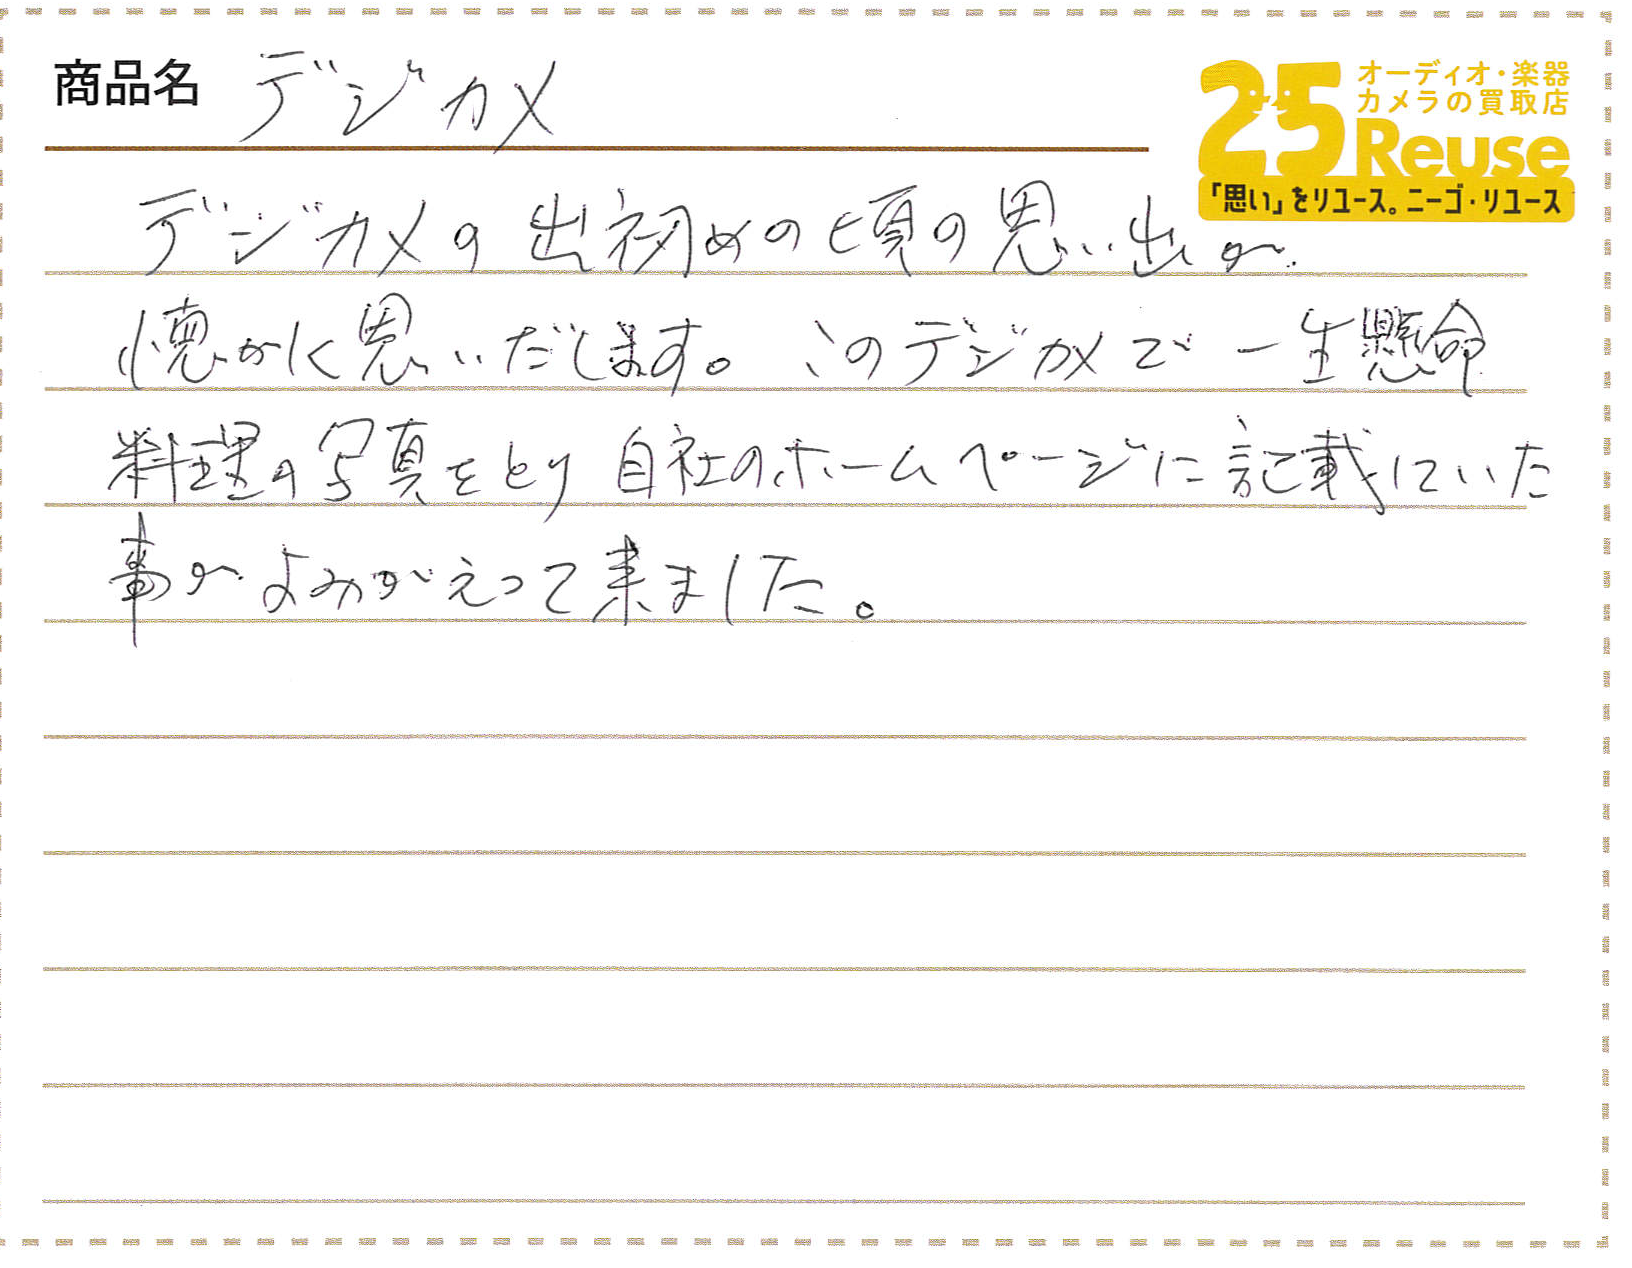 商品名 デジカメ
オーディオ・楽器
カメラの買取店
25 Reuse
「思い」をリユース。ニーゴ・リユース
デジカメの出初めの頃の思い出が
懐かしく思いだします。このデジカメで一生懸命
料理の写真をとり自社のホームページに記載していた
事がよみがえって来ました。